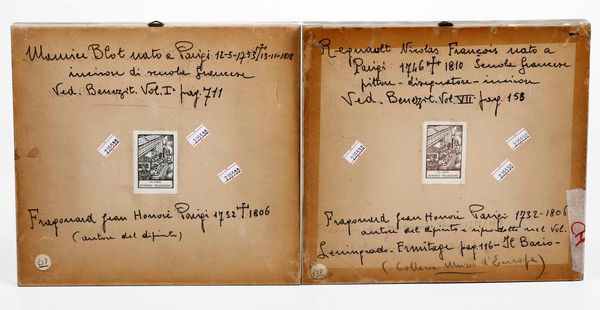 Maurice Blot nato a Parigi 12-5-1753 † 13-11-1818
incisore di scuola francese
Ved. Benezit. Vol. I° pag. 711
Fragonard Jean Honoré Parigi 1732 † 1806
(autore del dipinto)
137
Regnault Nicolas François nato a
Parigi 1746 † 1810 Scuola francese
pittore - disegnatore - incisore
Ved. Benezit. Vol. VII° pag. 158
Fragonard Jean Honoré Parigi 1732-1806
autore del dipinto e riprodotto nel Vol.
Leningrado - Ermitage pag. 116 - Il Bacio -
(Collana Musei d'Europa)